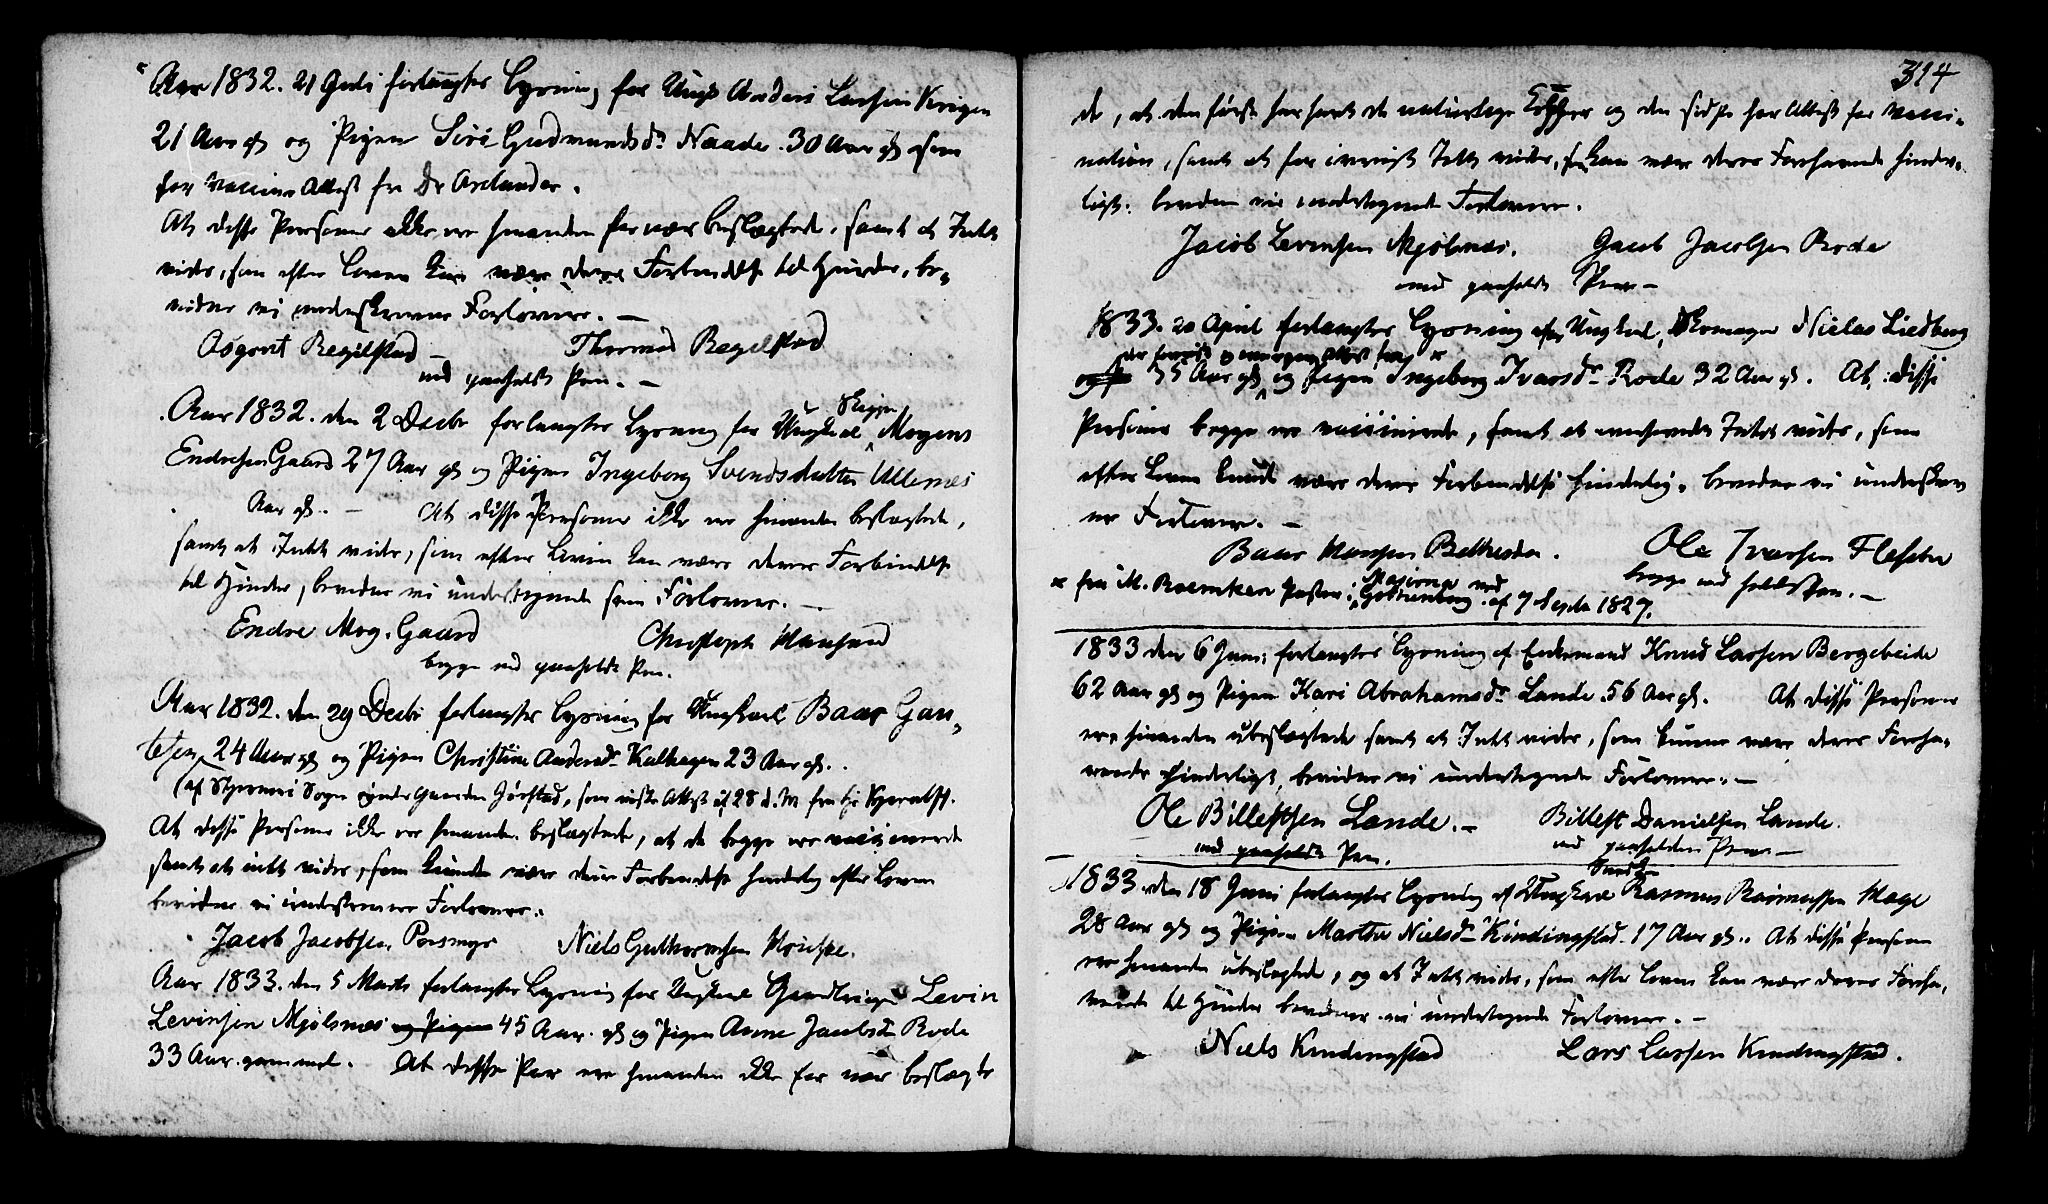 Aar 1832. 21 Juli forlangtes Lysning for Ungk Anders Larsen
21 Aar gl og Pigen Siri Gudmundsdr Naade 30 Aar gl som
har Vaccine Attest fra Dr Axlander.
At disse Personer ikke ere hinanden for nær beslægtede, samt at Intet
vides, som efter Loven kan være deres Forbindelse til Hinder, be-
vidner vi underskrevne Forlovere. —
Asgout Regelstad — Thormod Regelstad
med paaholdt Pen. —
Aar 1832. den 2 Decbr forlangtes Lysning for Ungkarl Mogens
Endresen Gaard 27 Aar gl og Pigen Ingeborg Svendsdatter Ullenes
Aar gl. — At disse Personer ikke ere hinanden beslægtede,
samt at Intet vides, som efter Loven kan være deres Forbindelse
til Hinder, bevidner vi undertegnede som Forlovere. —
Endre Mog. Gaard Christoph Hansen
begge med paaholdt Pen.
Aar 1832. den 29 Decbr forlangtes Lysning for Ungkarl Baar Gau-
tesen 24 Aar gl og Pigen Christine Andersdr Kalhagen 23 Aar gl.
(af Sogn Gaarden Jørstad, som viste Attest af 28 d. M. fra Hr
At disse Personer ikke ere hinanden beslægtede, at de begge ere vaccinerede
samt at intet vides, som kunde være deres Forbindelse hinderlig efter Loven
bevidner vi underskrevne Forlovere.
Jacob Jacobsen Porsmyr Niels Guthormsen
Aar 1833. den 5 Marts forlangtes Lysning for Ungkarl Levin
Levinsen Mjølsnæs og Pigen 45 Aar gl og Pigen Anne Jacobsdr Rode
33 Aar gammel. At disse Par ere hinanden ikke for nær beslægte
314
de, at den første har havt de naturlige Kopper og den sidste har Attest for Vacci-
nation, samt at for øvrigt Intet vides, som kan være deres Forehavende hinder-
ligt. bevidner vi undertegnede Forlovere.
Jacob Levinsen Mjølsnæs. Jacob Jacobsen Rode
med paaholdt Pen —
1833. 20 April forlangtes Lysning af Ungkarl, Skomager Nielas Liedberg
35 Aar gl og Pigen Ingeborg Ivarsdr Rode 32 Aar gl. At disse
Personer begge ere vaccinerede, samt at Intet vides, som
efter Loven kunde være deres Forbindelse hinderlig, bevidner vi underskrev
ne Forlovere. —
Baar Hansen Ole Ivarsen
begge med holdt Pen. —
fra M. Pastor i Gottenborg af 7 Septr 1827.
1833 den 6 Juni forlangtes Lysning af Enkemand Knud Larsen Bergeheide
62 Aar gl og Pigen Kari Abrahamsdr Lande 56 Aar gl. At disse Personer
ere hinanden ubeslægtede samt at Intet vides, som kunne være deres Foreha-
vende hinderligt, bevidner vi undertegnede Forlovere. —
Ole Billestsen Lande. — Billest Danielsen Lande.
med paaholdt Pen. med paaholden Pen —
1833. den 18 Juni forlangtes Lysning af Ungkarl Rasmus Rasmussen Hage
28 Aar gl og Pigen Martha Nielsdr Kindingstad 17 Aar gl. At disse Personer
ere hinanden ubeslægtede, og at Intet vides, som efter Loven kan være deres Foreha-
vende til Hinder bevidner vi undertegnede Forlovere. —
Niels Kindingstad Lars Larsen Kindingstad.